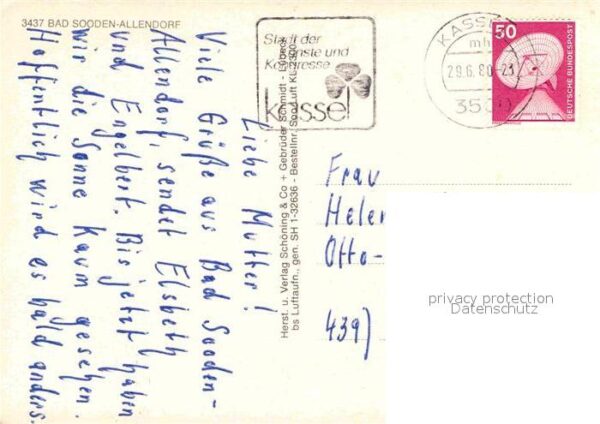 3437 BAD SOODEN-ALLENDORF
Liebe Mutter!
Viele Grüße aus Bad Sooden-
Allendorf, sendet Elsbeth
und Engelbert. Bis jetzt haben
wir die Sonne kaum gesehen.
Hoffentlich wird es bald anders.
Herst. u. Verlag Schöning & Co + Gebrüder Schmidt -
bs Luftaufn., gen. SH 1-32636 - Bestellnr. Soo Luft KL
Stadt der
Künste und
Kongresse
kassel
KASSEL
mh
29.6.80-23
3500
50
DEUTSCHE BUNDESPOST
Frau
Heler
Otto-
439)
privacy protection
Datenschutz